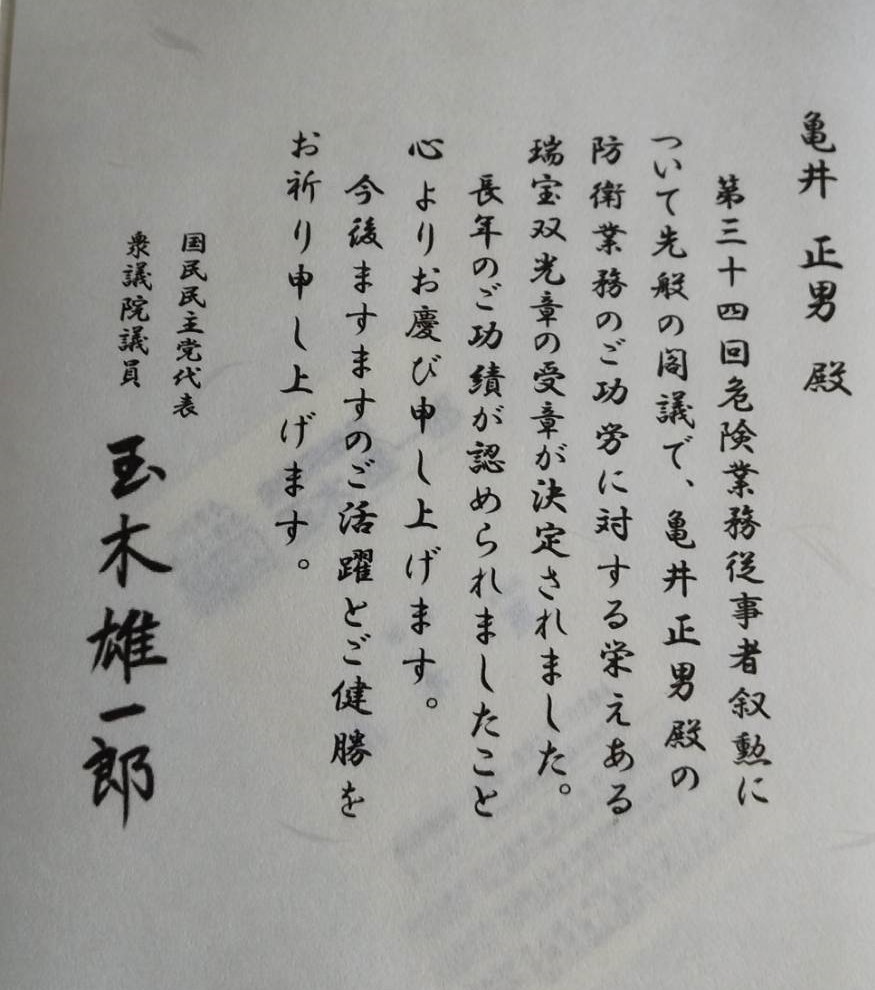 亀井 正男 殿
第三十四回危険業務従事者叙勲に
ついて先般の閣議で、亀井正男殿の
防衛業務のご功労に対する栄えある
瑞宝双光章の受章が決定されました。
長年のご功績が認められましたこと
心よりお慶び申し上げます。
今後ますますのご活躍とご健勝を
お祈り申し上げます。
国民民主党代表
衆議院議員
玉木雄一郎